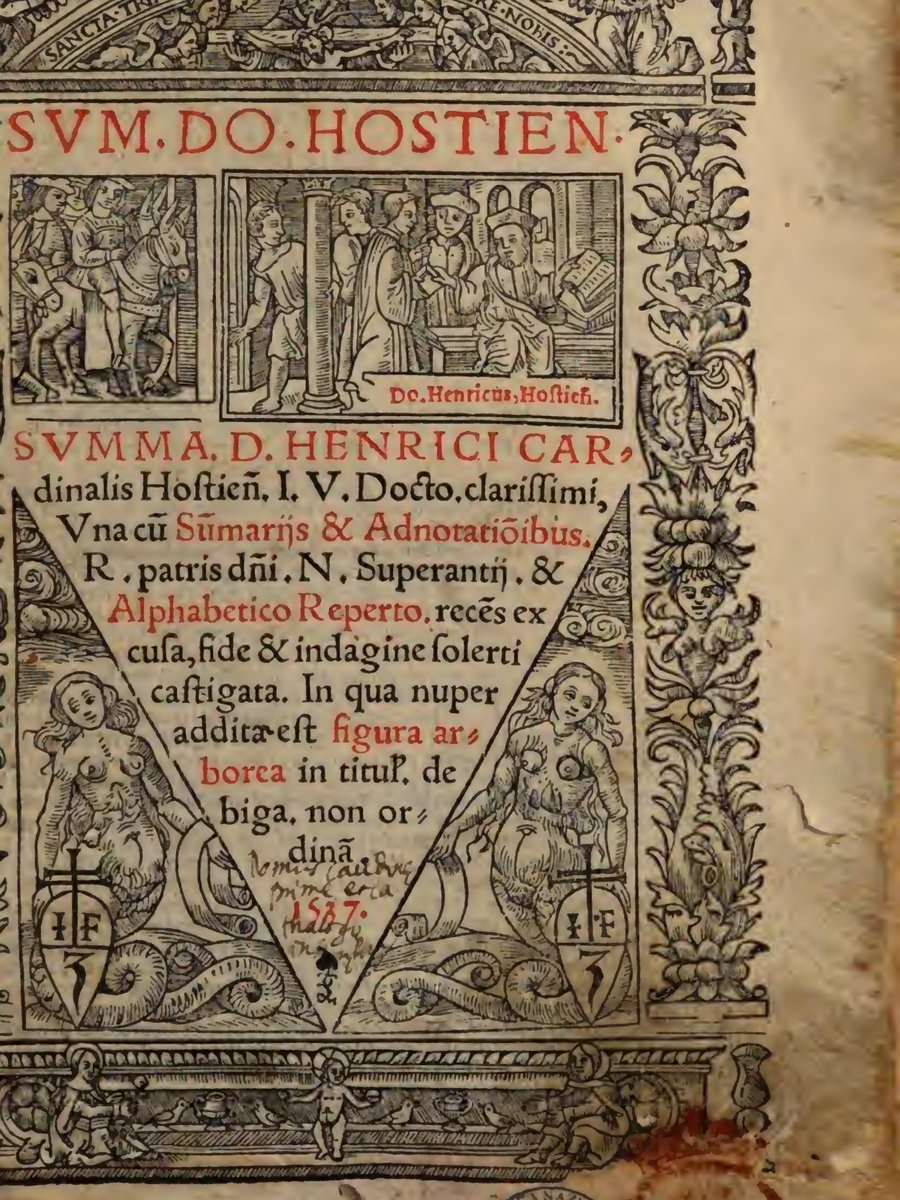 SANCTA·TRI RE·NOBIS:
SVM.DO.HOSTIEN.
Do.Henricus,Hostien̄.
SVMMA. D. HENRICI CAR⸗
dinalis Hostien̄. I. V. Docto. clarissimi,
Vna cū Sūmarijs & Adnotatiōibus.
R. patris dn̄i. N. Superantij. &
Alphabetico Reperto. recēs ex
cusa, fide & indagine solerti
castigata. In qua nuper
addita est figura ar⸗
borea in titul'. de
biga. non or⸗
dinā
1537.
I F
3
I F
3